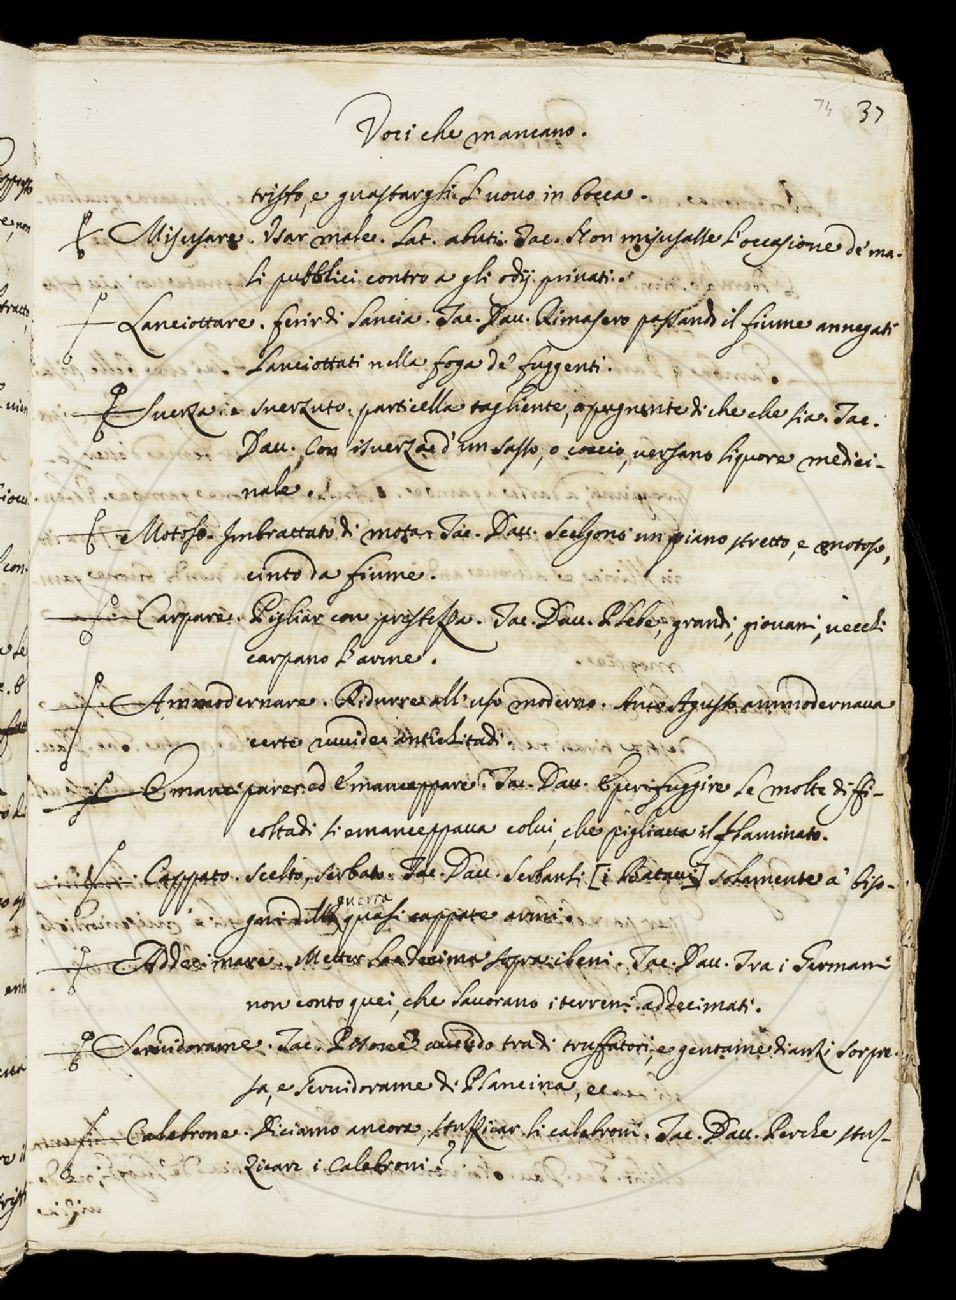 74 37
Voci che mancano.
tristo, e guastargli l'uovo in bocca.
Misusare. Usar male. Lat. abuti. Tac. Non misusasse l'occasione de' ma-
li pubblici contro a gli odij privati.
Lanciottare. ferir di lancia. Tac. Dav. Rimasero passando il fiume annegati
lanciottati nella foga de' fuggenti.
Sverza. e sverzuto. particella tagliente, o pugnente di che che sia. Tac.
Dav. Con isverza d'un sasso, o coccio, versano liquore medici-
nale.
Motoso. Imbrattato di mota. Tac. Dav. Scelsono un piano stretto, e motoso,
cinto da fiume.
Carpare. Pigliar con prestezza. Tac. Dav. Plebe, grandi, giovani, vecchi
carpano l'arme.
Ammodernare. Ridurre all'uso moderno. Agusto ammodernava
certe ruvide antichitadi.
Emancipare. ed Emanceppare. Tac. Dav. E per fuggire le molte diffi-
coltadi si emanceppava colui, che pigliava il flaminato.
Cappato. scelto, serbato. Tac. Dav. Serbansi [i Batavi] solamente a' biso-
gni della guerra quasi cappate armi.
Addecimare. Metter la decima sopra i beni. Tac. Dav. Tra i Germani
non conto quei, che lavorano i terreni addecimati.
Servidorame. Tac. Pisone avendo tra di truffatori, e gentame dianzi sorpre-
sa, e servidorame di Plancina, ec
Calabrone. Diciamo ancora, stuzzicar li calabroni. Tac. Dav. Perche stuz-
zicare i calabroni?